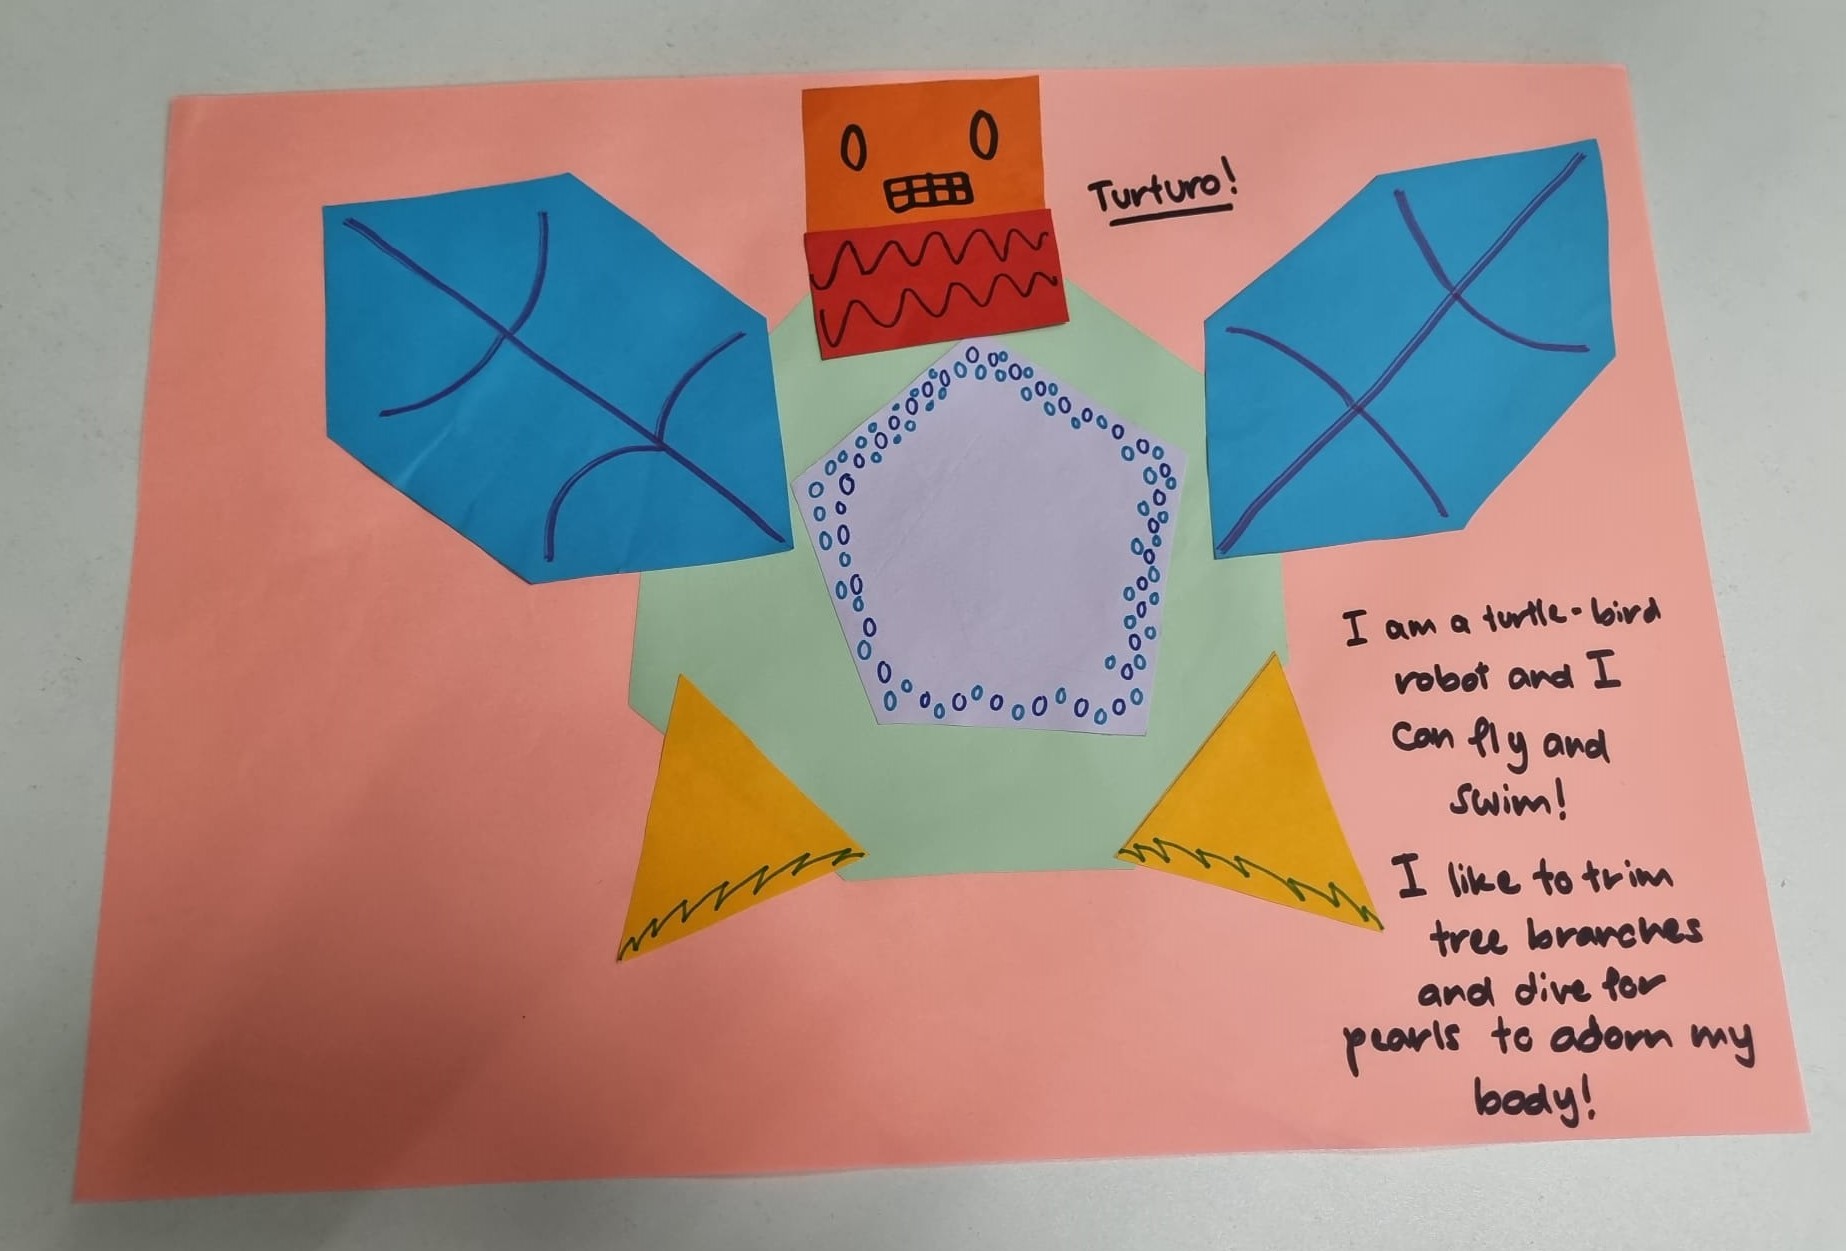 Turturo!
I am a turtle-bird
robot and I
can fly and
swim!
I like to trim
tree branches
and dive for
pearls to adorn my
body!